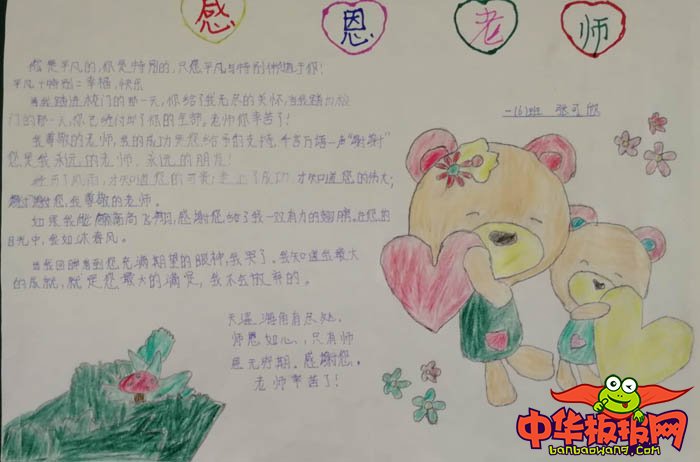 感 恩 老 师
您是平凡的,你是特别的,只愿平凡与特别伴随于你!
平凡+特别=幸福,快乐
当我踏进校门的那一天,你给了我无尽的关怀,当我踏出校
门的那一天,你已经付出了你的生命。老师你辛苦了!
我尊敬的老师,我的成功是您给予的支持,千言万语一声“谢谢”
您是我永远的老师,永远的朋友!
经历了风雨,才知道您的可贵;走上了成功,才知道您的伟大;
谢谢您,我尊敬的老师。
如果我能高高飞翔,感谢您给了我一双有力的翅膀。在您的
目光中,我如沐春风。
当我回眸看到您充满期望的眼神,我哭了。我知道我最大
的成就,就是您最大的满足,我不会放弃的。
天涯海角有尽处,
师恩如心,只有师
恩无穷期。感谢您。
老师辛苦了!
一(6)班 张可欣
中华板报网
banbaowang.com